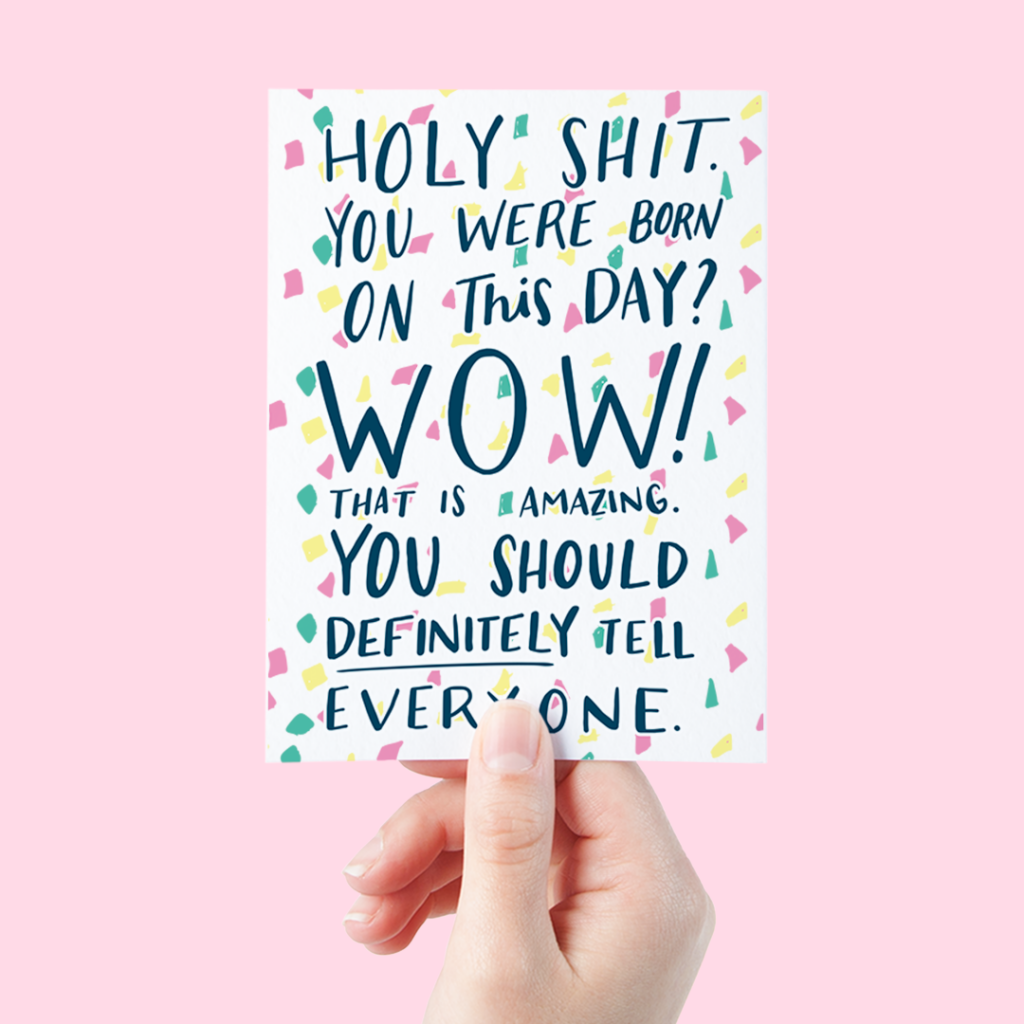 HOLY SHIT.
YOU WERE BORN
ON This DAY?
WOW!
THAT IS AMAZING.
YOU SHOULD
DEFINITELY TELL
EVERYONE.